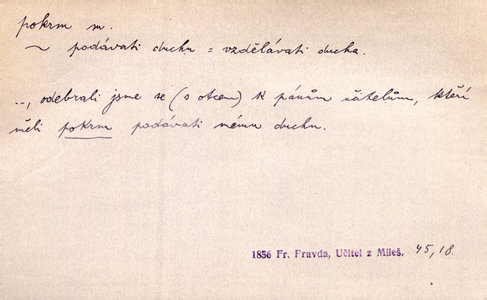 pokrm m.
~ podávati duchu = vzdělávati ducha.
..., odebrali jsme se (s otcem) k pánům učitelům, kteří
měli pokrm podávati mému duchu.
1856 Fr. Pravda, Učitel z Mileš. 45,18.